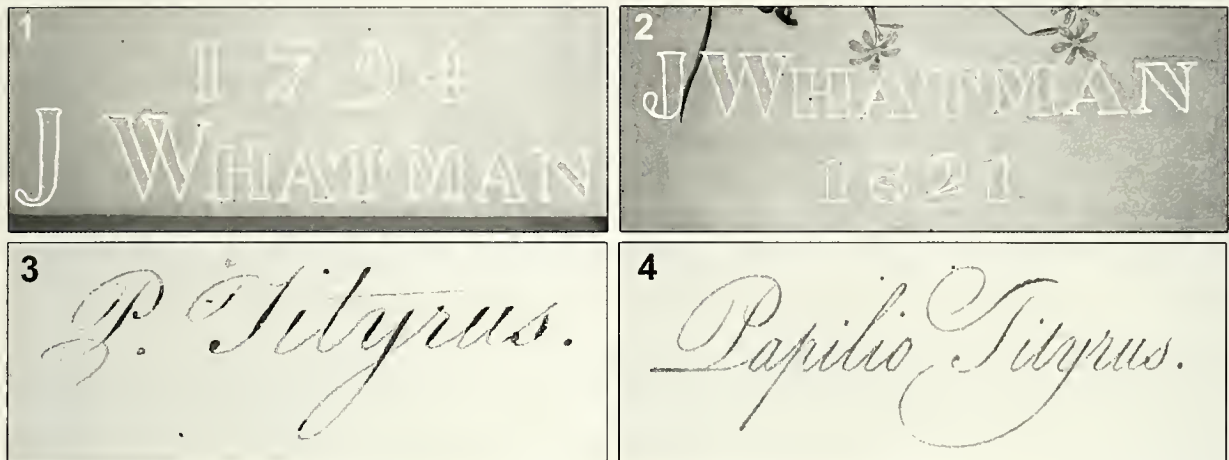 1
1794
J WHATMAN
2
J WHATMAN
1821
3
P. Tityrus.
4
Papilio Tityrus.